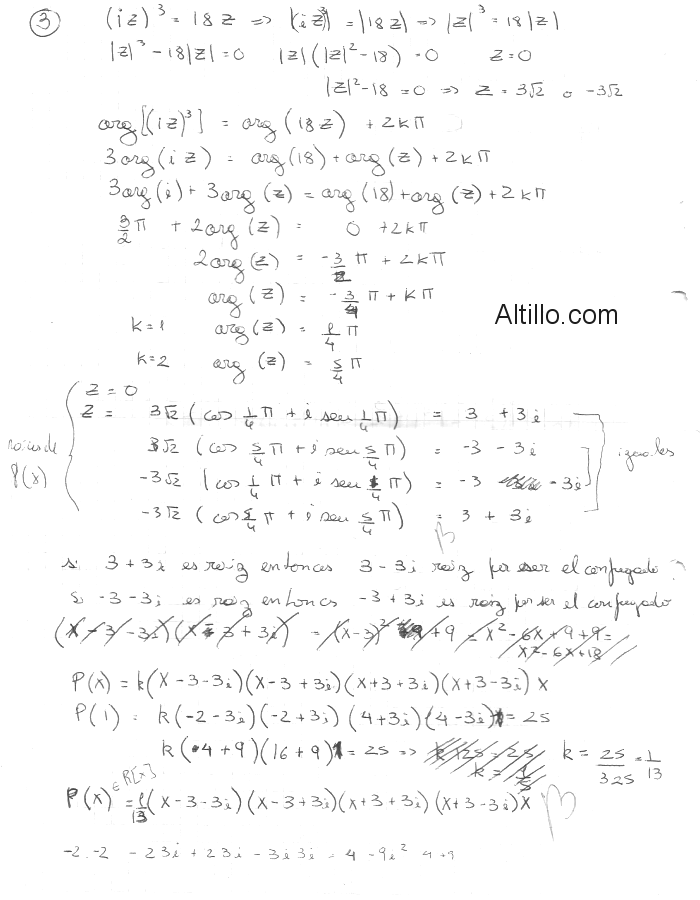 ③ (iz)³ = 18z => |iz³| = |18z| => |z|³ = 18|z|
|z|³ - 18|z| = 0 |z|(|z|² - 18) = 0 z = 0
|z|² - 18 = 0 => z = 3√2 o -3√2
arg[(iz)³] = arg(18z) + 2kπ
3arg(iz) = arg(18) + arg(z) + 2kπ
3arg(i) + 3arg(z) = arg(18) + arg(z) + 2kπ
3/2 π + 2arg(z) = 0 + 2kπ
2arg(z) = -3/2 π + 2kπ
arg(z) = -3/4 π + kπ
Altillo.com
k=1 arg(z) = 1/4 π
k=2 arg(z) = 5/4 π
raices de P(x)
z = 0
z = 3√2 (cos 1/4 π + i sen 1/4 π) = 3 + 3i
3√2 (cos 5/4 π + i sen 5/4 π) = -3 - 3i
iguales
-3√2 (cos 1/4 π + i sen 1/4 π) = -3 - 3i
-3√2 (cos 5/4 π + i sen 5/4 π) = 3 + 3i
B
si 3+3i es raiz entonces 3-3i raiz por ser el conjugado
Si -3-3i es raiz entonces -3+3i es raiz por ser el conjugado
(x-3-3i)(x-3+3i) = (x-3)² + 9 = x² - 6x + 9 + 9 =
x² - 6x + 18
P(x) = k(x-3-3i)(x-3+3i)(x+3+3i)(x+3-3i) x
P(1) = k(-2-3i)(-2+3i)(4+3i)(4-3i)1 = 25
k(4+9)(16+9)1 = 25 => k = 25/325 = 1/13
P(x) ∈ R[x] = 1/13 (x-3-3i)(x-3+3i)(x+3+3i)(x+3-3i)x B
-2.-2 - 23i + 23i - 3i3i = 4 - 9i² 4+9